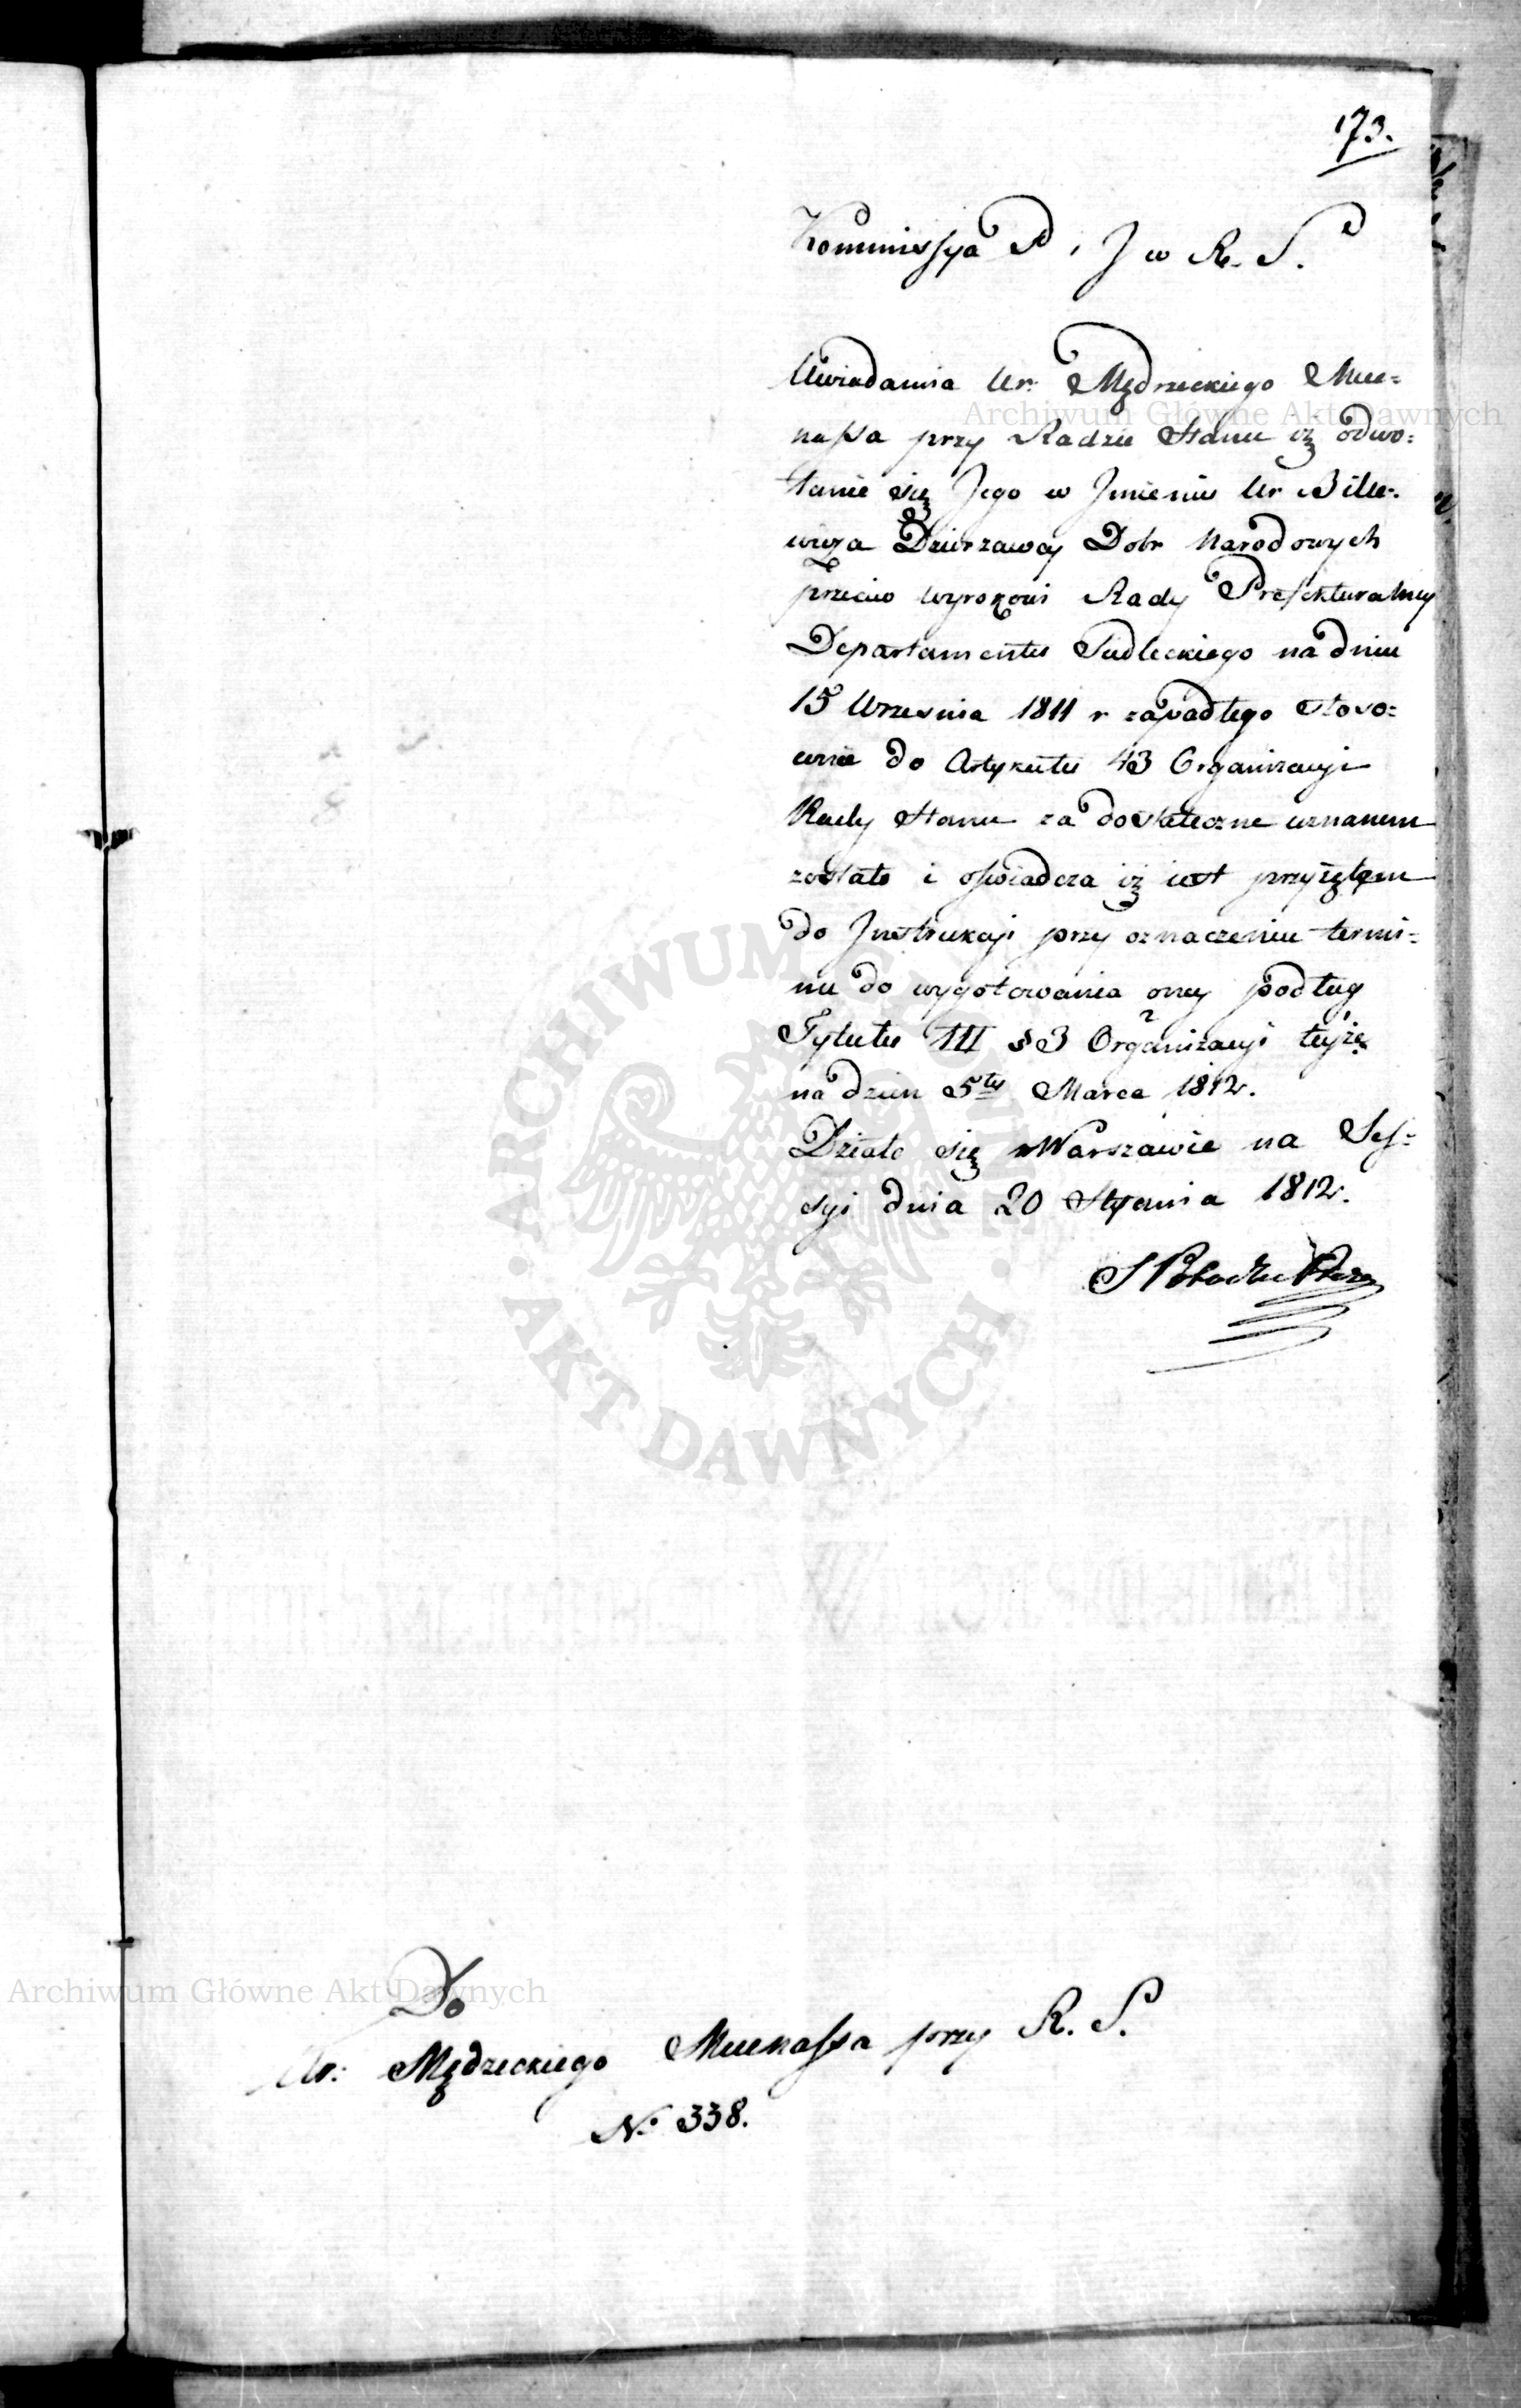 173.
Kommissya P. i J w R. S.
Uwiadamia Ur: Mędrzeckiego Mece=
nassa przy Radzie Stanu iż odwo=
łanie się Jego w Jmieniu Ur Bille=
wicza Dzierzawcy Dobr Narodowych
przeciw wyrokowi Rady Prefekturalney
Departamentu Siedleckiego na dniu
15 Września 1811 r zapadłego stoso=
wnie do Artykułu 43 Organizacyi
Rady Stanu za dostateczne uznanem
zostało i oświadcza iż iest przyiętem
do Jnstrukcyi przy oznaczeniu termi=
nu do wygotowania oney podług
Tytułu III § 3 Organizacyi teyże
na dzien 5ty Marca 1812.
Działo się w Warszawie na Ses=
syi dnia 20 Stycznia 1812.
Do
Ur: Mędrzeckiego Mecenassa przy R. S.
No 338.
Archiwum Główne Akt Dawnych
Archiwum Główne Akt Dawnych
ARCHIWUM GŁÓWNE · AKT DAWNYCH ·